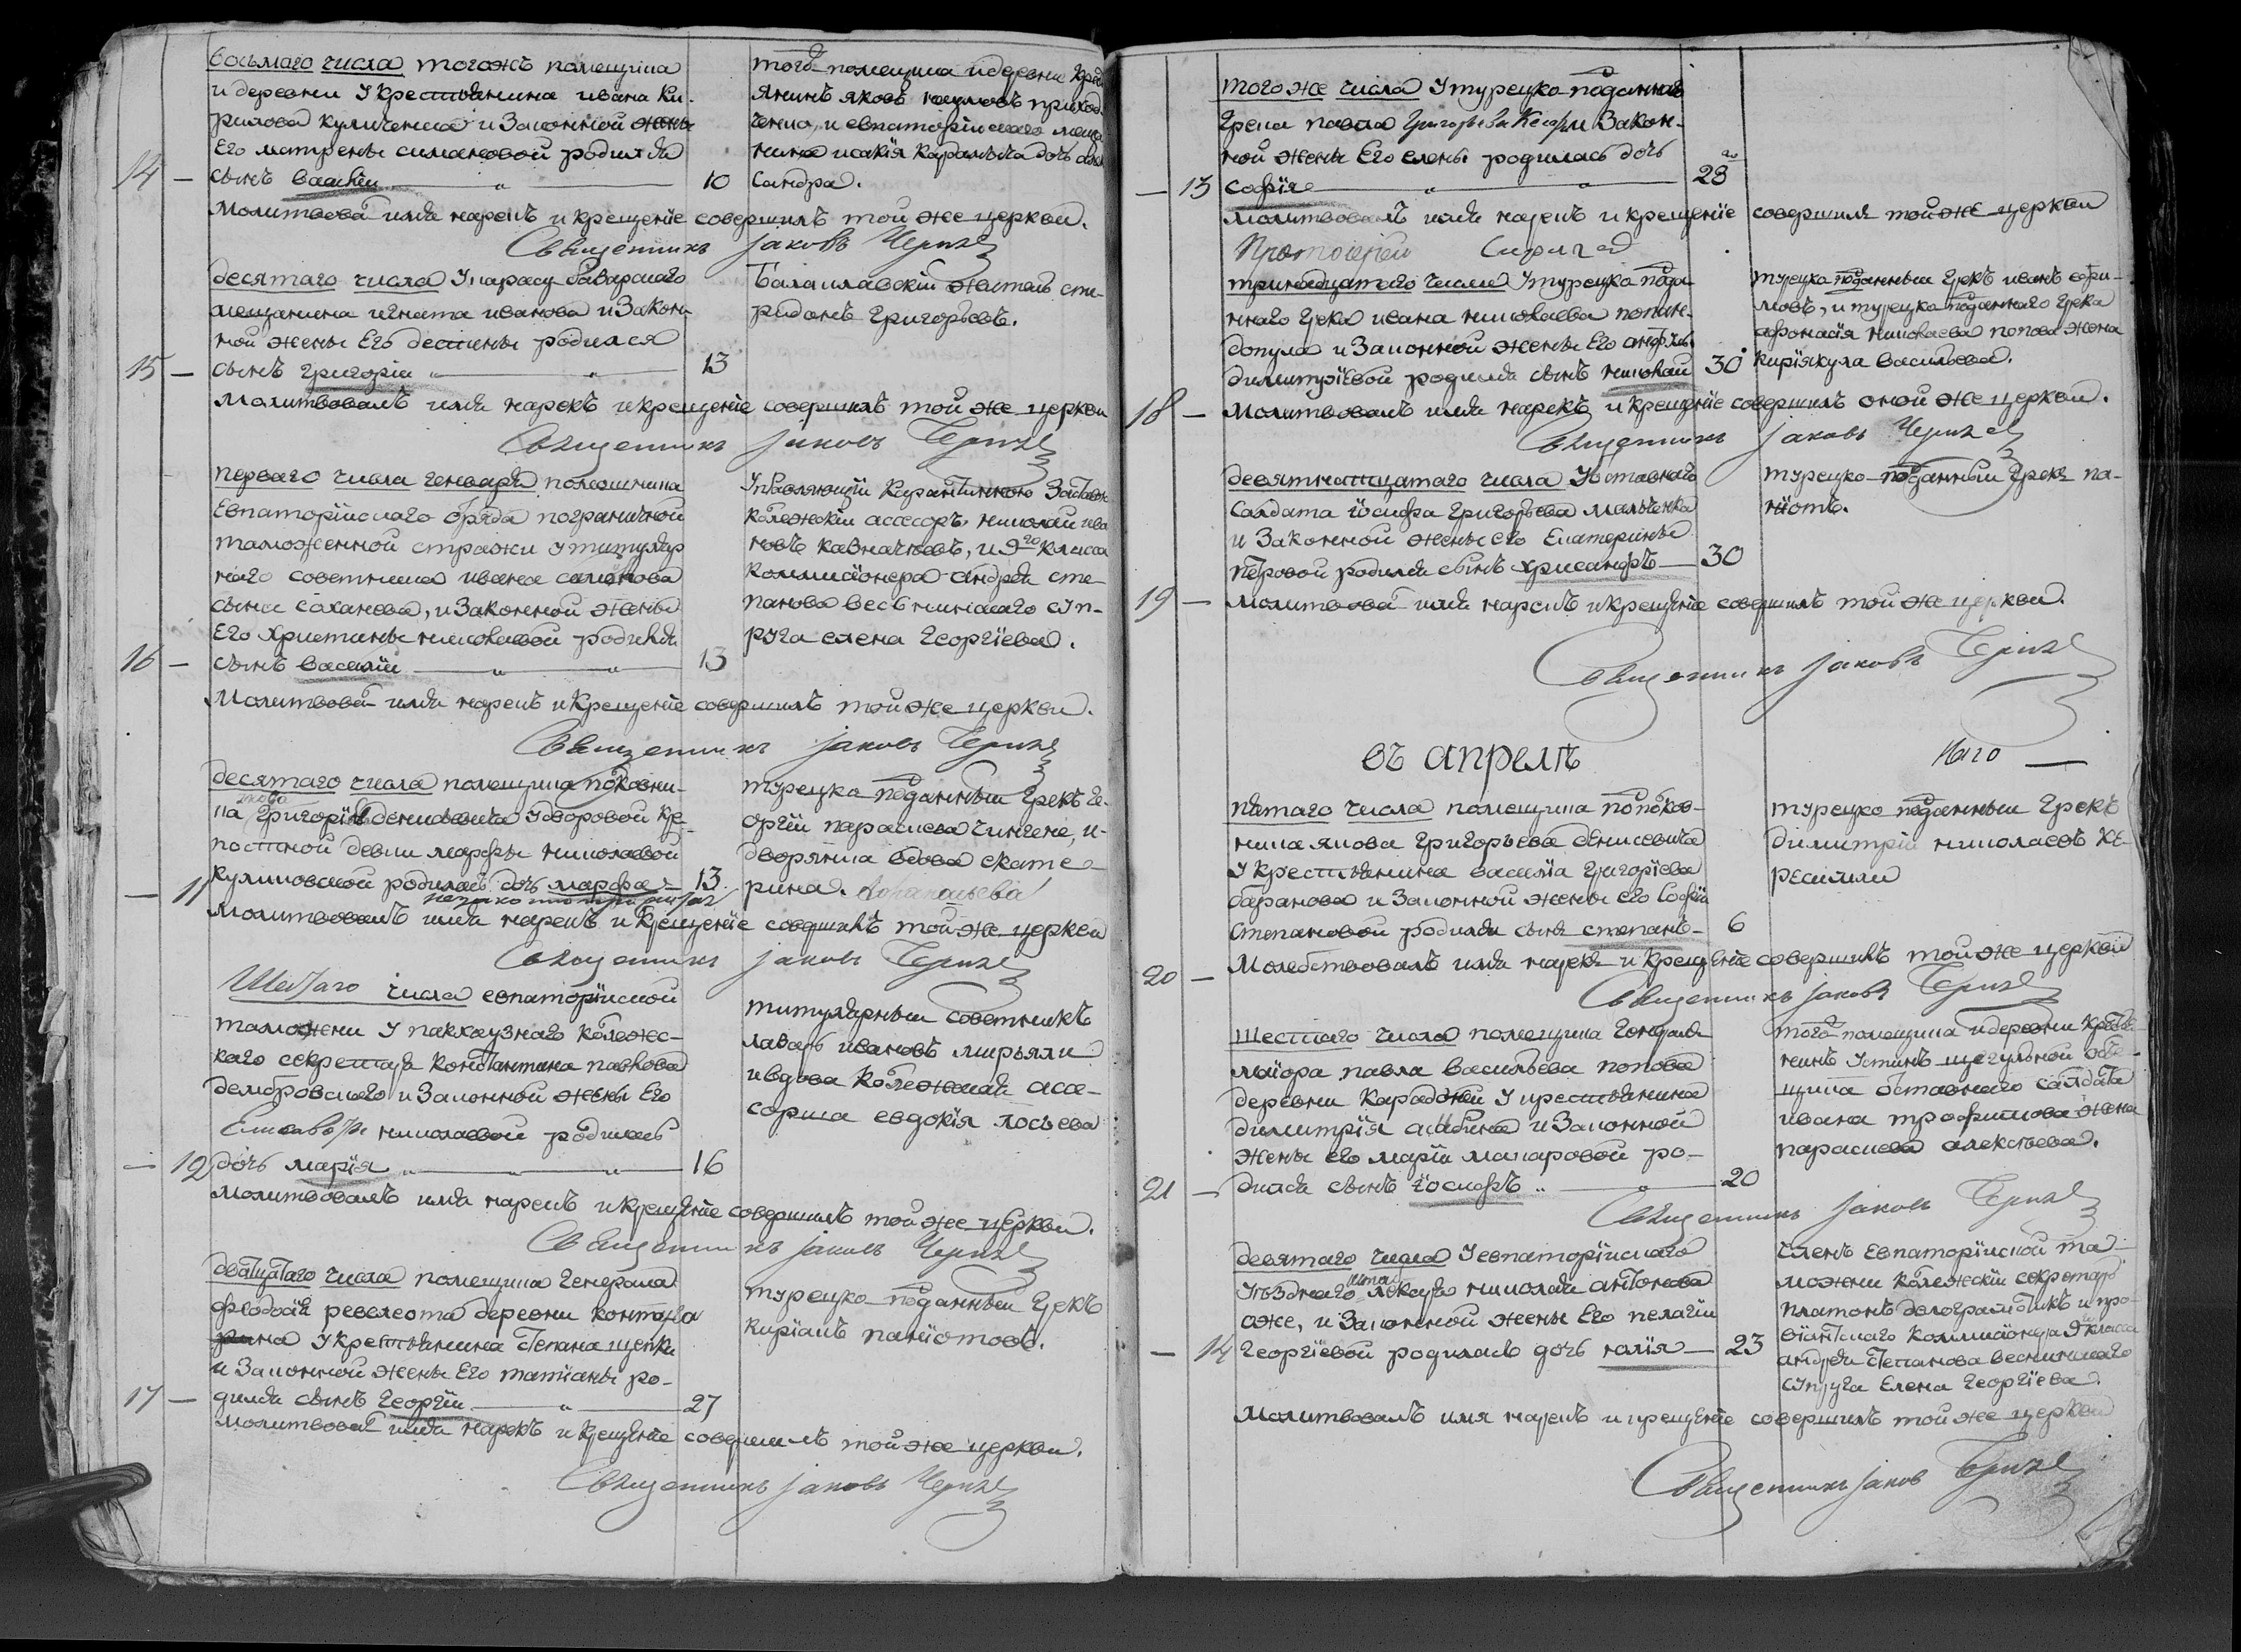 восьмаго числа тогожъ помещика
и деревни У крестьянина ивана Ки-
рилова куличенка и Законной жены
Его матрены симановой родился
14 — сынъ василій — 10
того помещика и деревни крес
янинъ яковъ наумовъ приход
ченко, и евпаторійскаго меща
нина исакія дочь алек
сандра.
Молитвова имя нарекъ и крещеніе совершилъ той же церкви.
Священникъ Іаковъ Чепиге
десятаго числа У карасу базарскаго
мещанина игната иванова и Закон
ной жены Его родился
15 — сынъ григорій — 13
балаклавскій житель спи-
ридонъ Григорьевъ.
Молитвовалъ имя нарекъ и крещеніе совершилъ той же церкви
Священникъ Іаковъ Чепиге
перваго числа генваря помошника
Евпаторійскаго пограничной
таможенной стражи У титуляр
наго советника ивана семенова
сына саханева, и Законной жены
Его христины николаевой родился
16 — сынъ василій — 13
Управляющій Карантинною Заставою
Колежскій ассесоръ николай ива
новъ казначеевъ, и 9го класса
коммисіонера андрея сте-
панова суп-
руга елена георгіева.
Молитвова имя нарекъ и крещеніе совершилъ той же церкви.
Священникъ Іаковъ Чепиге
десятаго числа помещика полковни-
ка григорія денисевича У дворовой кре-
постной девки марфы николаевой
куликовской родилась дочь марфа — 13
— 11
турецко подданный грекъ ге-
оргій параскева чингене, и
дворянка вдова екате-
рина. Афанасьева
Молитвовалъ имя нарекъ и крещеніе совершилъ той же церкви
Священникъ Іаковъ Чепиге
Шестаго числа евпаторійской
таможни У пакгаузнаго колежс-
каго секретаря Константина павлова
дембровскаго и Законной жены Его
Елисаветы николаевой родилась
— 12 дочь марія — 16
титулярный советникъ
лазарь ивановъ мирьяли
и вдова колежская асе-
сорша евдокія лосьева
Молитвовалъ имя нарекъ и крещеніе совершилъ той же церкви.
Священникъ Іаковъ Чепиге
двацатаго числа помещика генерала
феодосія ревелеота деревни контуга
У крестьянина степана щепки
и Законной жены Его татіаны ро-
17 — дился сынъ георгій — 27
турецко подданный грекъ
киріакъ паніотовъ.
Молитвова имя нарекъ и крещеніе совершилъ той же церкви.
Священникъ Іаковъ Чепиге
того же числа У турецко подданнаго
грека павла григорьева и Закон-
ной жены Его елены родилась дочь
— 13 софія — 28
Молитвовалъ имя нарекъ и крещеніе совершилъ той же церкви
Протоіерей
тринадцатаго числа У турецко подда-
ннаго грека ивана николаева попан-
допула и Законной жены Его
димитріевой родился сынъ николай 30
турецко подданный грекъ иванъ ефи-
мовъ, и турецко подданнаго грека
афонасія николаева попова жена
киріякула васильева.
18 — Молитвовалъ имя нарекъ и крещеніе совершилъ оной же церкви.
Священникъ Іаковъ Чепиге
девятнатцатаго числа У отставнаго
салдата іосифа григорьева мальченка
и Законной жены его Екатерины
петровой родился сынъ хрисанфъ — 30
турецко подданный грекъ па-
ніотъ.
19 — Молитвова имя нарекъ и крещеніе совершилъ той же церкви.
Священникъ Іаковъ Чепиге
въ апрелѣ
пятаго числа помещика полков-
ника якова григорьева денисевича
У крестьянина василія григоріева
баранова и Законной жены его Софіи
степановой родился сынъ степанъ — 6
турецко подданный грекъ
димитрій николаевъ ке-
20 — Молебствовалъ имя нарекъ и крещеніе совершилъ той же церкви
Священникъ Іаковъ Чепиге
шестаго числа помещика генерал
маіора павла васильева попова
деревни караджи У крестьянина
димитрія и Законной
жены его маріи макаровой ро-
21 — дился сынъ іосифъ — 20
того помещика и деревни крестья-
нинъ Устинъ
отставнаго салдата
ивана трофимова жена
параскева алексѣева.
Священникъ Іаковъ Чепиге
девятаго числа У евпаторійскаго
Уезднаго лекаря николая антонова
аже, и Законной жены Его пелагіи
— 14 георгіевой родилась дочь юлія — 23
членъ евпаторійской та-
можни колежскій секретарь
платонъ и про-
віантскаго коммисіонера 9 класса
андрея степанова
супруга елена георгіева.
Молитвовалъ имя нарекъ и крещеніе совершилъ той же церкви
Священникъ Іаковъ Чепиге